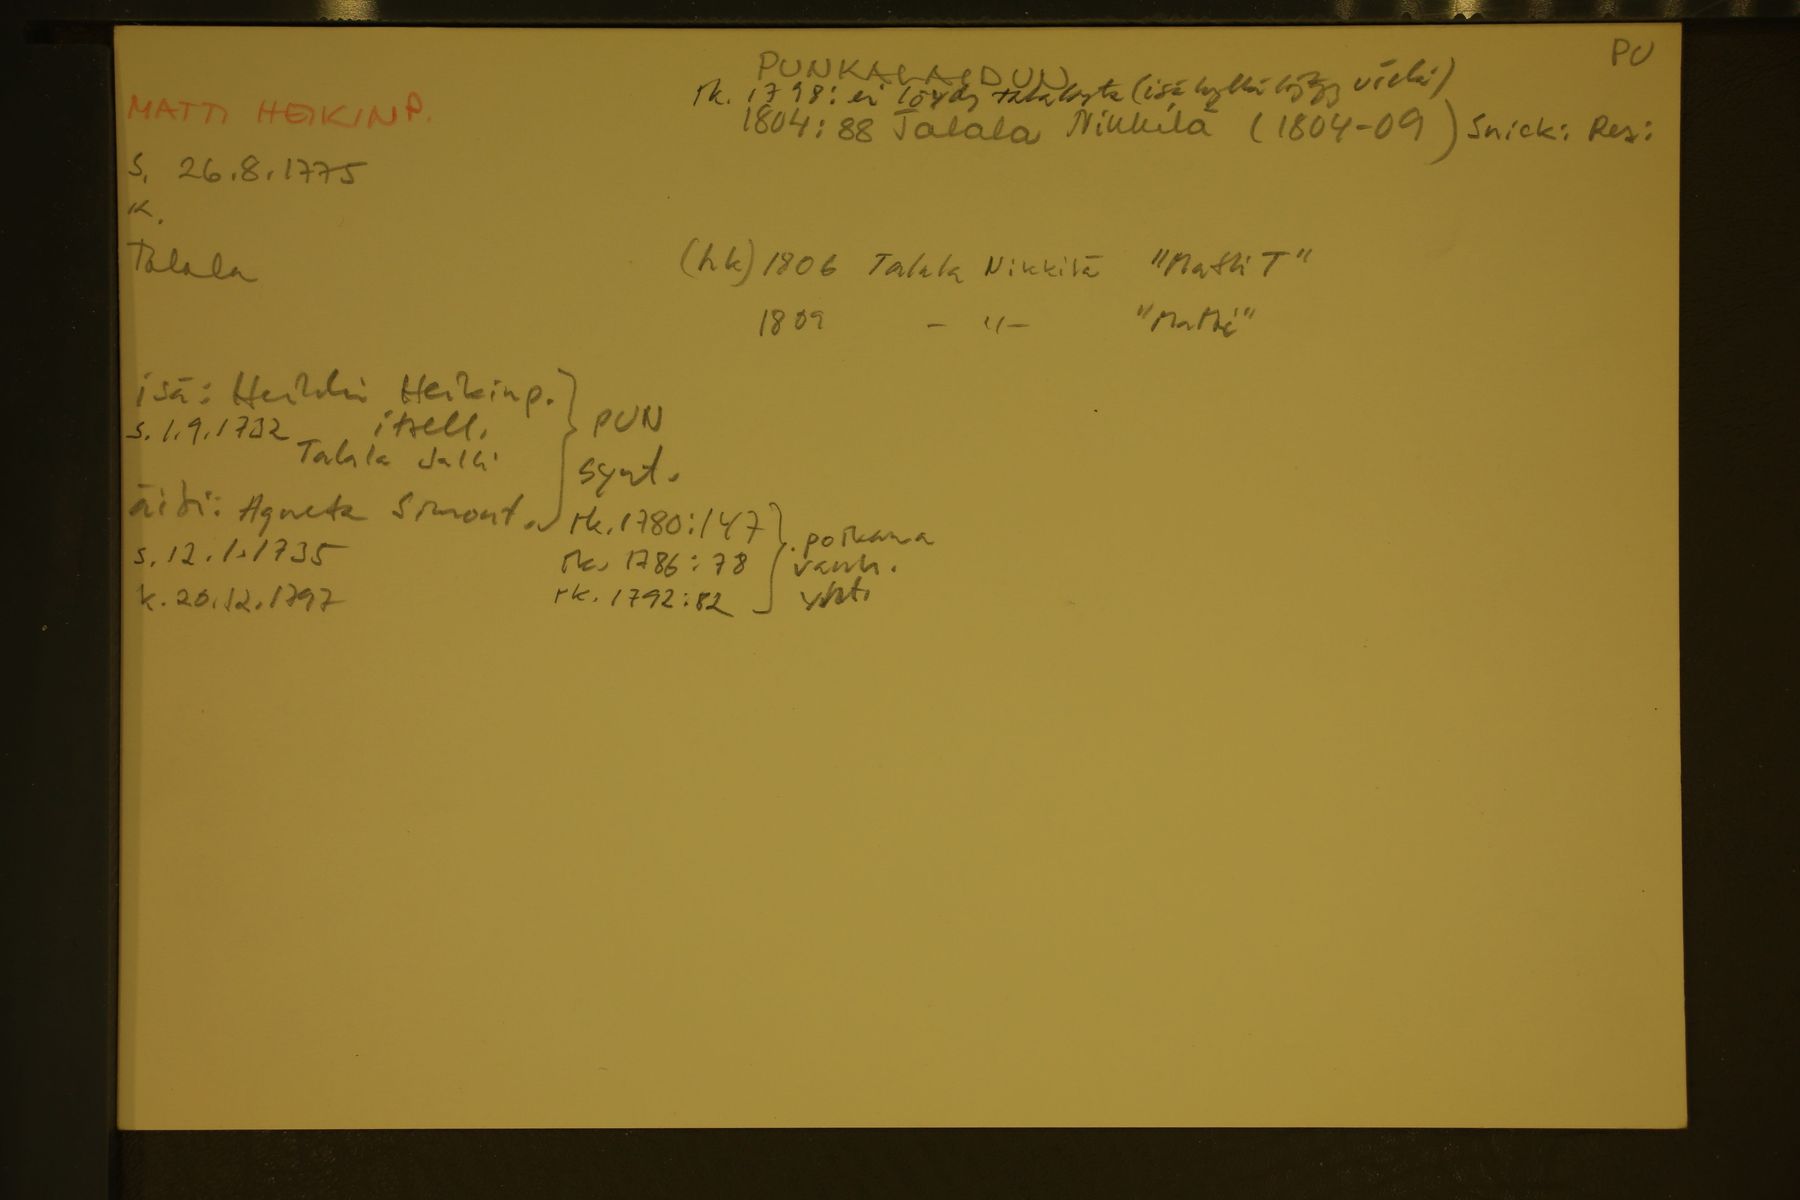 PU
PUNKALAIDUN
rk. 1798: ei löydy (isä kyllä löytyy vielä)
1804: 88 Talala Nikkilä (1804-09) Snick: Res:
MATTI HEIKINP.
s. 26.8.1775
k.
Talala
(hk) 1806 Talala Nikkilä "Matti T"
1809 - " - "Matti"
isä: Heikki Heikinp.
s. 1.9.1732 itsell.
Talala
äiti: Agneta Simont.
s. 12.1.1735
k. 20.12.1797
PUN
synt.
rk. 1780:147
rk. 1786:78
rk. 1792:82
poikana
vanh.
yht.